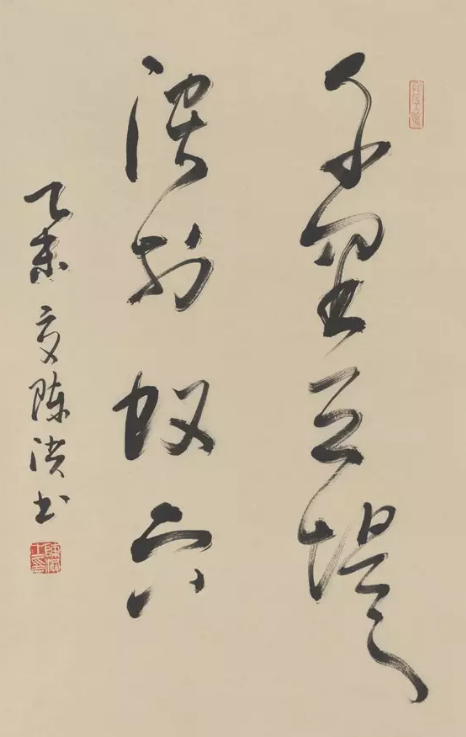 千里之堤
溃於蚁穴
乙未夏陈洪书